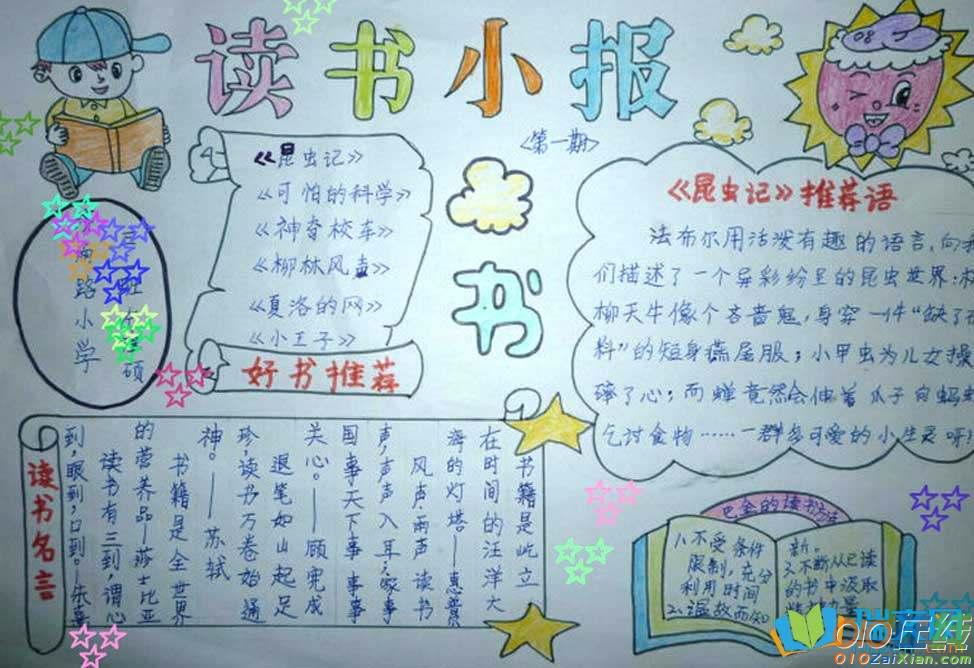 读书小报
<第一期>
《昆虫记》
《可怕的科学》
《神奇校车》
《柳林风声》
《夏洛的网》
《小王子》
好书推荐
书
路小学
硕
《昆虫记》推荐语
法布尔用活泼有趣的语言,向
们描述了一个异彩纷呈的昆虫世界:
柳天牛像个吝啬鬼,身穿一件“缺了
料”的短身燕尾服;小甲虫为儿女操
碎了心;而蝉竟然会伸着爪子向蚂
乞讨食物……一群多可爱的小生灵呀
读书名言
书籍是屹立
在时间的汪洋大
海的灯塔。——惠普
风声雨声读书
声,声声入耳;家事
国事天下事事事
关心。——顾宪成
退笔如山起足
珍,读书万卷始通
神。——苏轼
书籍是全世界
的营养品—莎士比亚
读书有三到,谓心
到,眼到,口到。—朱熹
巴金的读书方法
1、不受条件
限制,充分
利用时间
2、温故而知
新。
3、不断从已读
的书中汲取
010在线
010ZaiXian.com